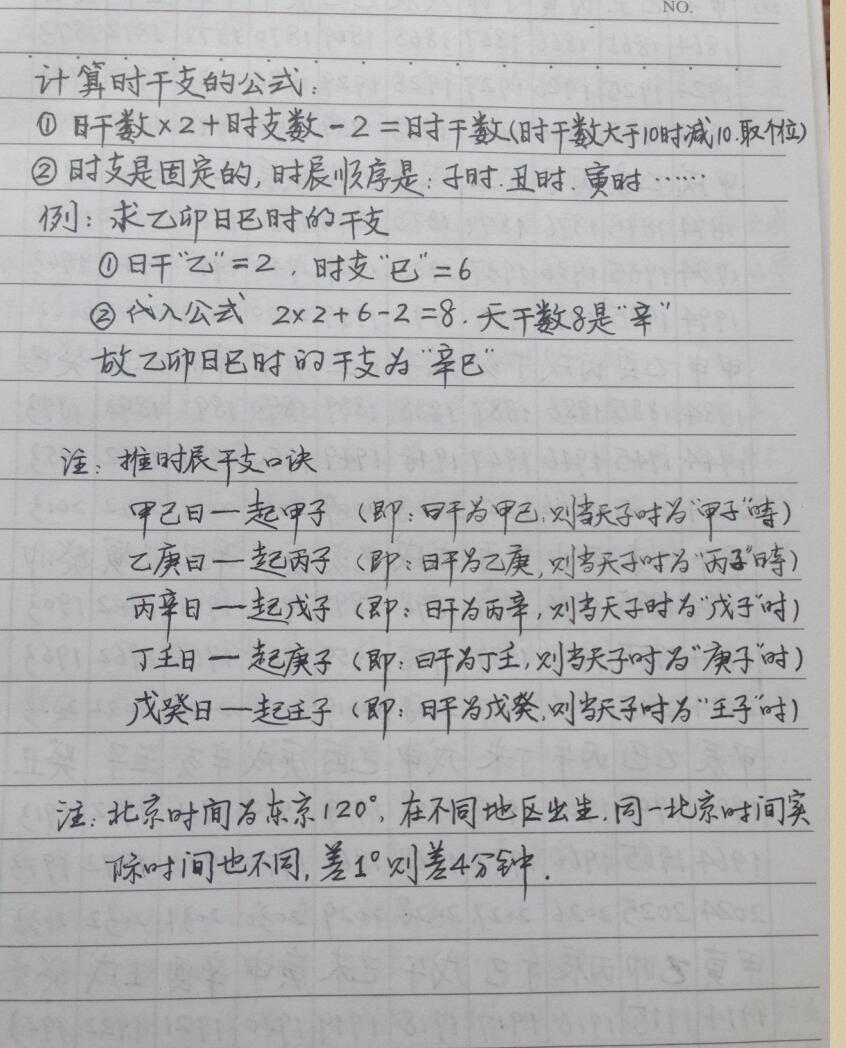 NO.
计算时干支的公式:
① 日干数×2+时支数-2=时干数(时干数大于10时减10.取个位)
② 时支是固定的,时辰顺序是:子时.丑时.寅时……
例:求乙卯日巳时的干支
①日干"乙"=2 . 时支"巳"=6
② 代入公式 2×2+6-2=8. 天干数8是"辛"
故乙卯日巳时的干支为"辛巳"
注:推时辰干支口诀
甲己日一起甲子(即:日干为甲己,则当天子时为"甲子"时)
乙庚日一起丙子(即:日干为乙庚,则当天子时为"丙子"时)
丙辛日一起戊子(即:日干为丙辛,则当天子时为"戊子"时)
丁壬日一起庚子(即:日干为丁壬,则当天子时为"庚子"时)
戊癸日一起壬子(即:日干为戊癸,则当天子时为"壬子"时)
注:北京时间为东京120°,在不同地区出生,同一北京时间实
际时间也不同,差1°则差4分钟.